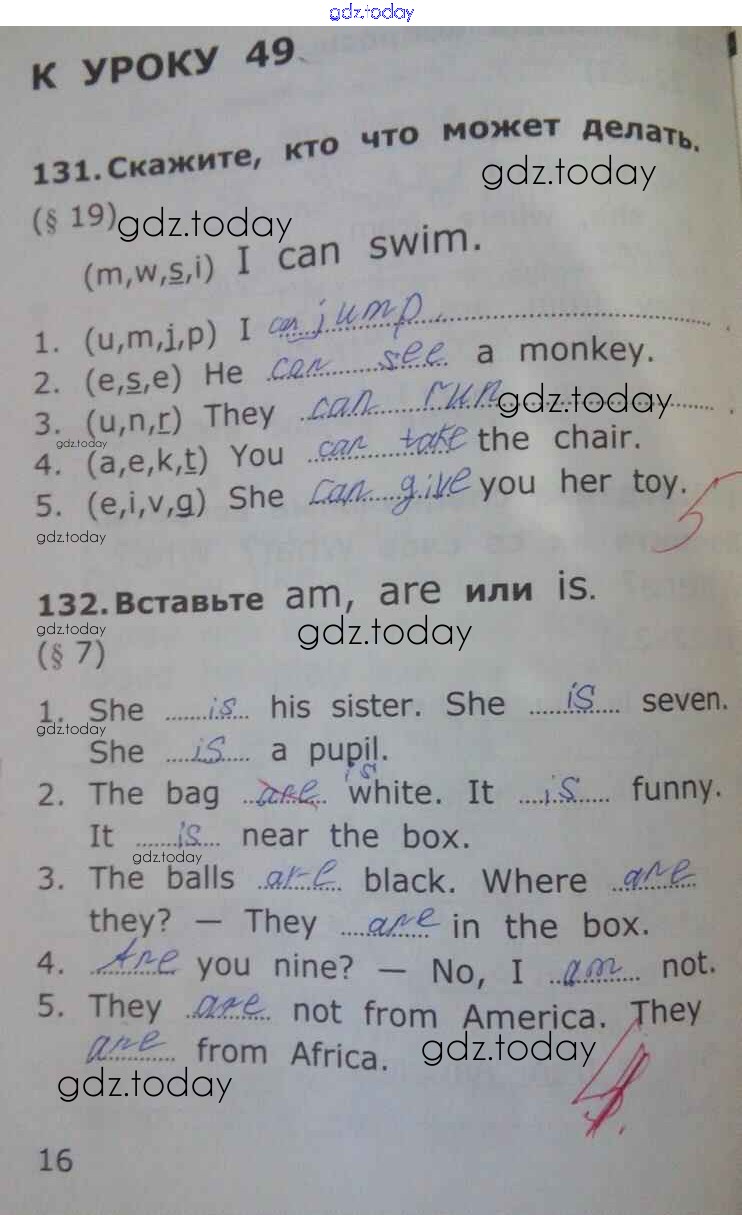 gdz.today
К УРОКУ 49
131. Скажите, кто что может делать.
gdz.today
(§ 19) gdz.today
(m,w,s,i) I can swim.
1. (u,m,j,p) I can jump.
2. (e,s,e) He can see a monkey.
3. (u,n,r) They can run.
gdz.today
gdz.today
4. (a,e,k,t) You can take the chair.
5. (e,i,v,g) She can give you her toy.
5
gdz.today
132. Вставьте am, are или is.
gdz.today
gdz.today
(§ 7)
1. She is his sister. She is seven.
gdz.today
She is a pupil.
is
2. The bag are white. It is funny.
It is near the box.
gdz.today
3. The balls are black. Where are
they? — They are in the box.
4. Are you nine? — No, I am not.
5. They are not from America. They
are from Africa.
gdz.today
gdz.today
4
16